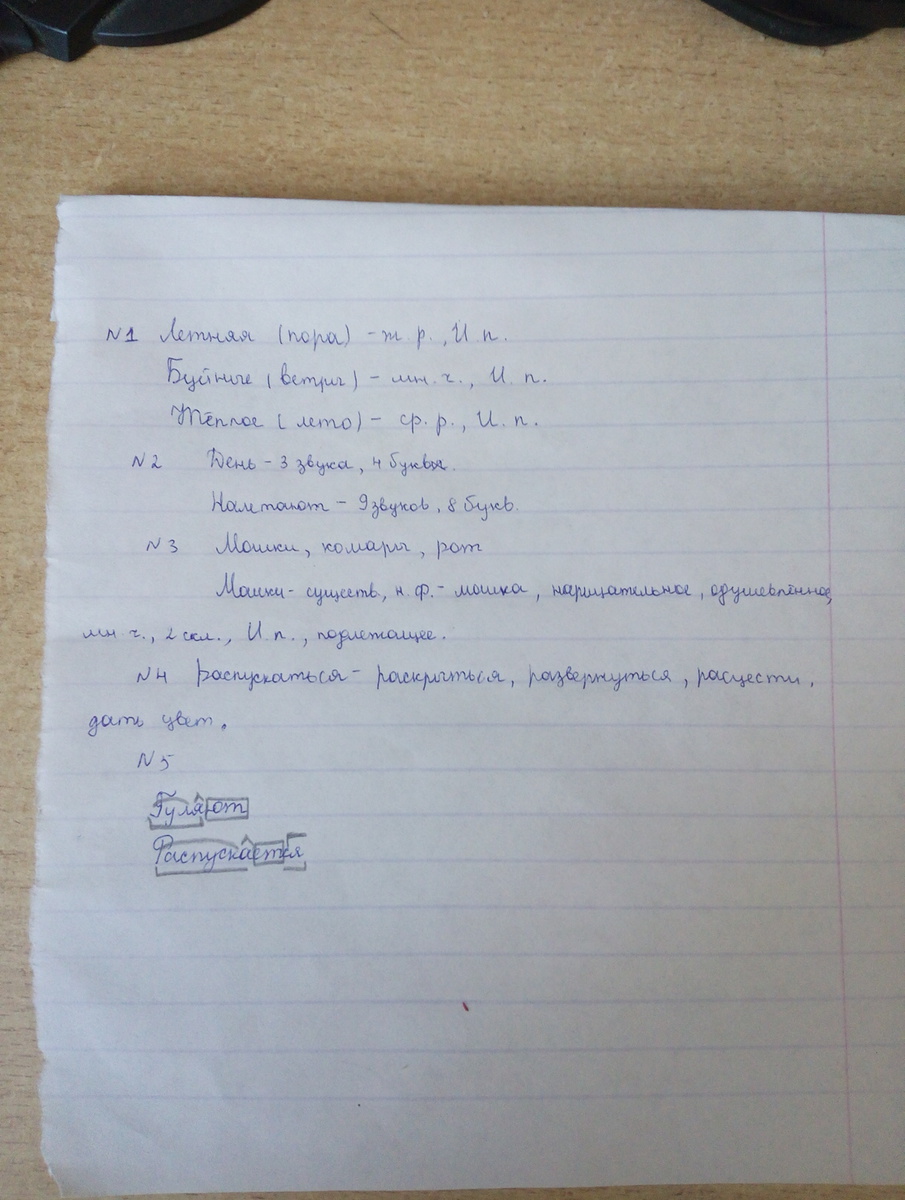 №1 Летняя (пора) - ж. р., И. п.
Буйные (ветры) - мн. ч., И. п.
Тёплое (лето) - ср. р., И. п.
№2 День - 3 звука, 4 буквы.
- 9 звуков, 8 букв.
№3 Мошки, комары, рот
Мошки - существ, н. ф. - мошка, нарицательное, одушевлённое,
мн. ч., 2 скл., И. п., подлежащее.
№4 Распускаться - раскрыться, развернуться, расцвести,
дать цвет.
№5
Гуляют
Распускается